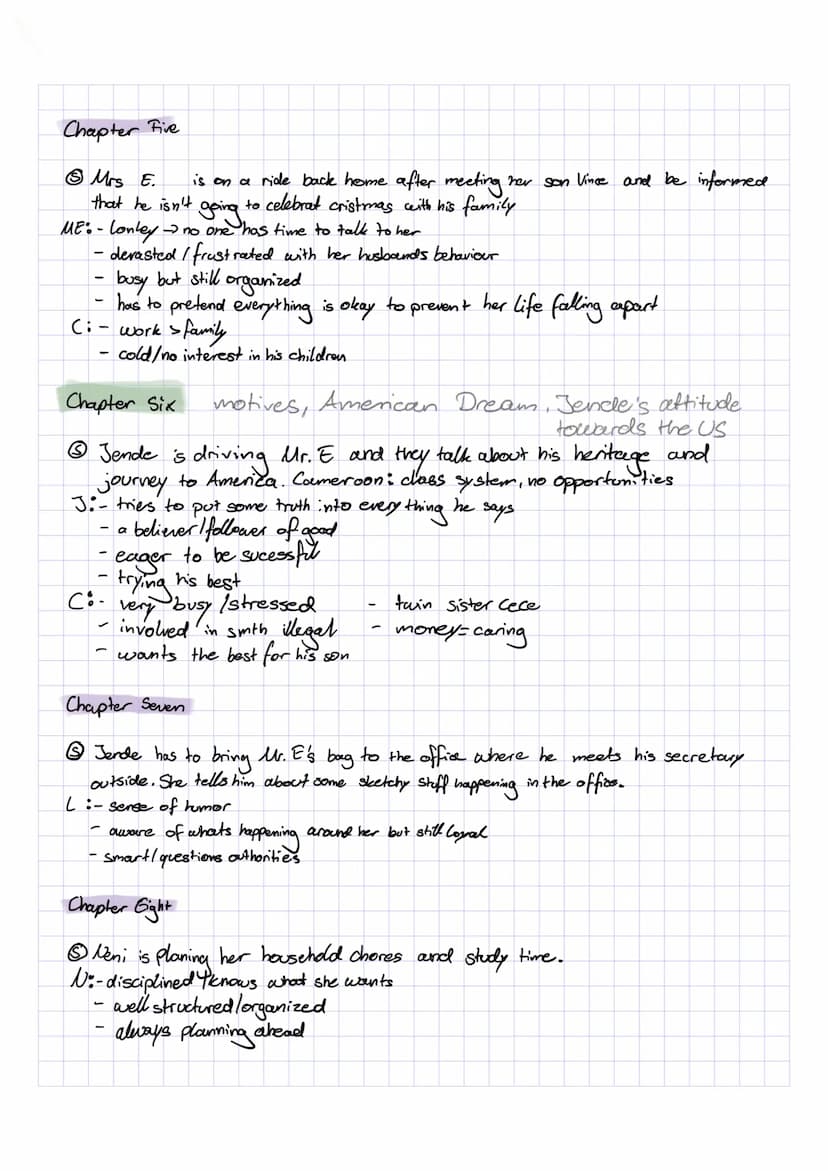 Chapter Five
Ⓢ Mrs E. is on a ride back home after meeting her son Vince and be informed
that he isn't going to celebrat cristmas with his family
ME:- Lonley → no one has time to talk to her
- devasted / frustrated with her husbounds behaviour
- busy but still organized
- has to pretend everything is okay to prevent her life falling apart
C:- work > family
- cold/no interest in his children
Chapter Six motives, American Dream, Jende's attitude
towards the US
Ⓢ Jende is driving Mr. E and they talk about his heritage and
journey to America. Cameroon: class system, no opportunities
J:- tries to put some truth into everything he says
- a believer/follower of good
- eager to be sucessful
- trying his best
C:- very busy /stressed - twin sister Cece
- involved in smth illegal - money=caring
- wants the best for his son
Chapter Seven
Ⓢ Jende has to bring Mr. E's bag to the office where he meets his secretary
outside. She tells him about some sketchy stuff happening in the office.
L:- sense of humor
- aware of whats happening around her but still loyal
- smart/questions authorities
Chapter Eight
Ⓢ Neni is planing her household chores and study time.
N:- disciplined + knows what she wants
- well structured/organized
- always planning ahead